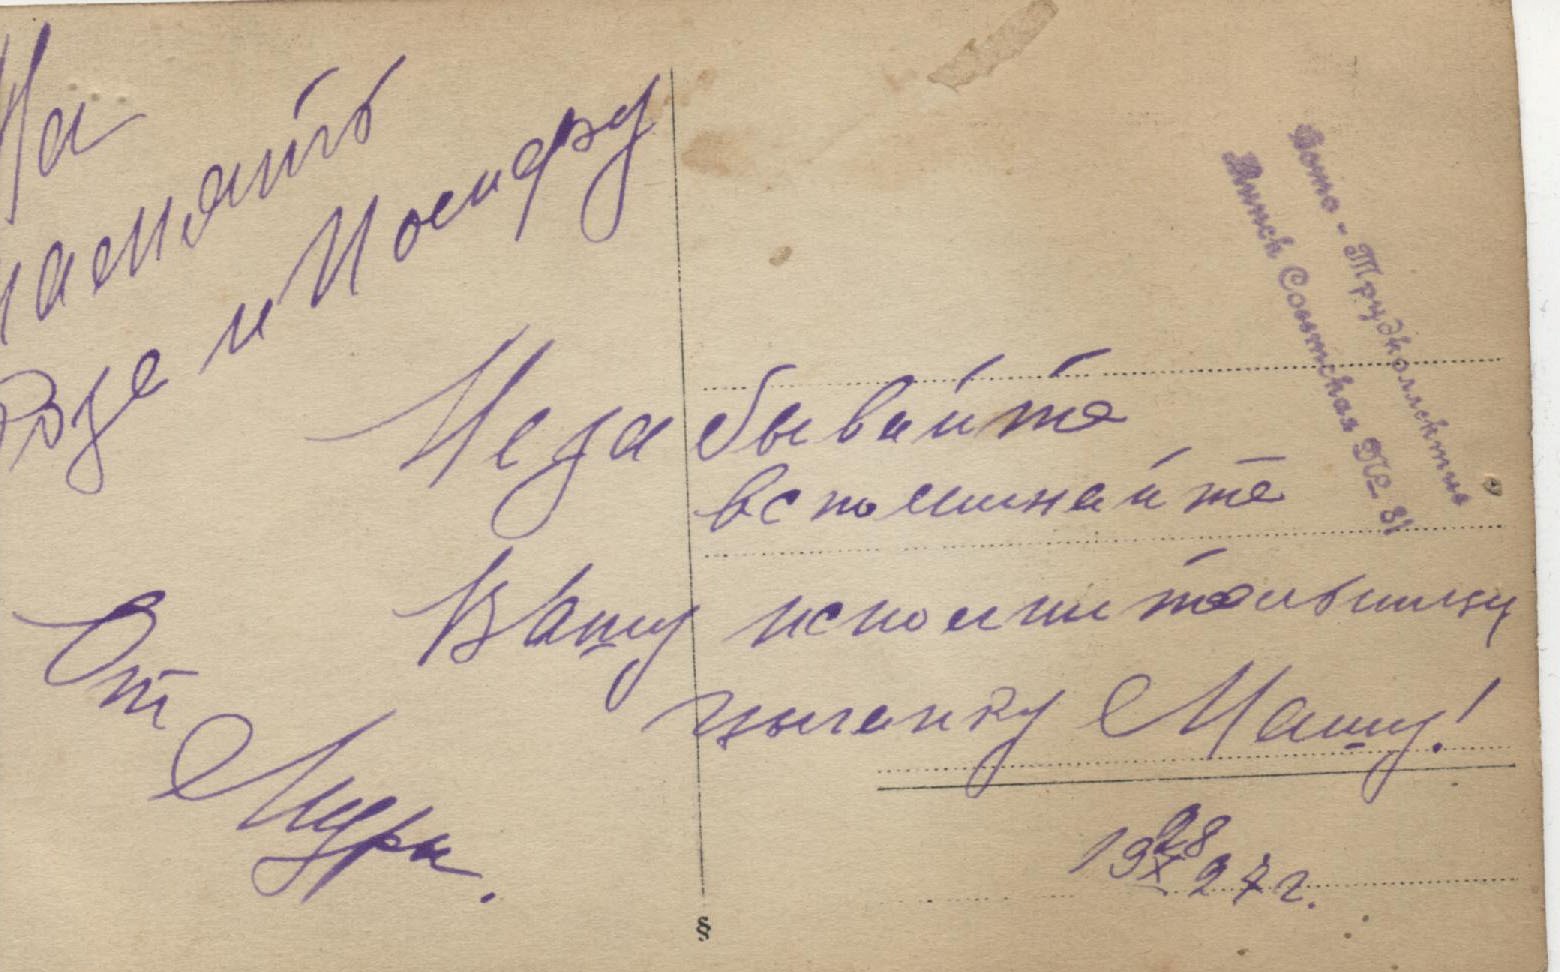 На
память
Розе и Иосифу
Незабывайте
вспоминайте
Вашу исполнительницу
цыганку Машу!
От
Муры.
19 28/X 27 г.
Фото - Трудколлектив
Минск Советская № 31
§